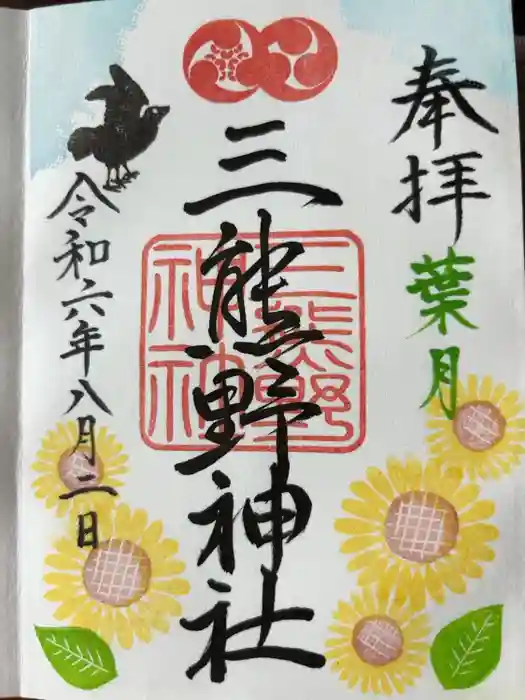 奉拝
葉月
三熊野神社
三熊野
神社
令和六年八月二日